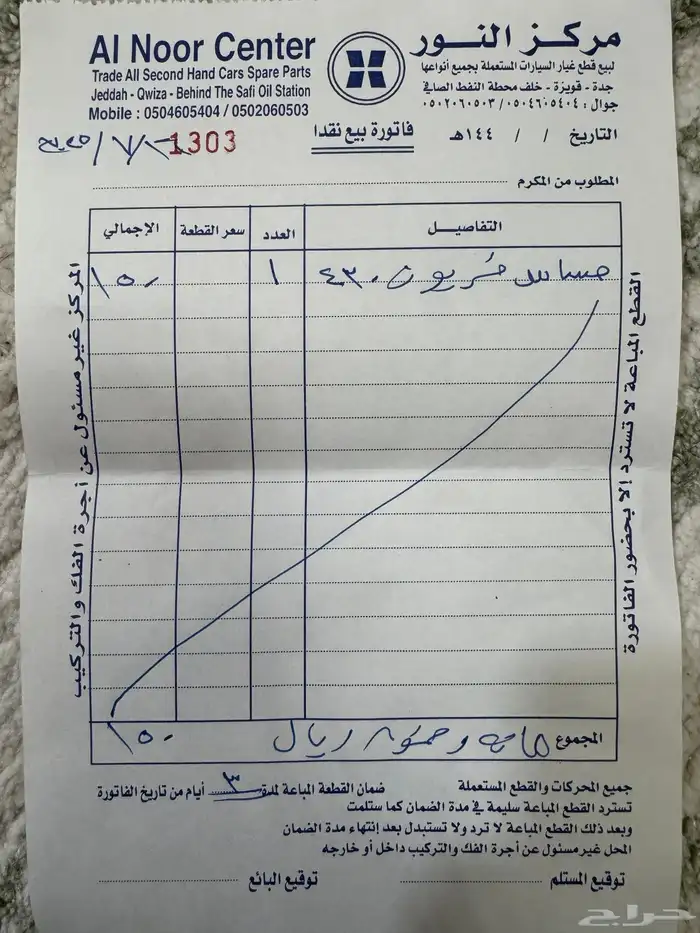 Al Noor Center
Trade All Second Hand Cars Spare Parts
Jeddah - Qwiza - Behind The Safi Oil Station
Mobile : 0504605404 / 0502060503
مركز النور
لبيع قطع غيار السيارات المستعملة بجميع أنواعها
جدة - قويزة - خلف محطة النفط الصافي
جوال : ٠٥٠٤٦٠٥٤٠٤ / ٠٥٠٢٠٦٠٥٠٣
فاتورة بيع نقدا
التاريخ / / ١٤٤هـ
1303
المطلوب من المكرم
التفاصيل العدد سعر القطعة الإجمالي
حساس فريون ٤٣٠ ١ ١٥٠
المجموع مائة وخمسون ريال ١٥٠
القطع المباعة لا تسترد إلا بحضور الفاتورة
المركز غير مسئول عن أجرة الفك والتركيب
جميع المحركات والقطع المستعملة ضمان القطعة المباعة لمدة ٣ أيام من تاريخ الفاتورة
تسترد القطع المباعة سليمة في مدة الضمان كما ستلمت
وبعد ذلك القطع المباعة لا ترد ولا تستبدل بعد إنتهاء مدة الضمان
المحل غير مسئول عن أجرة الفك والتركيب داخل أو خارجه
توقيع المستلم توقيع البائع
حراج